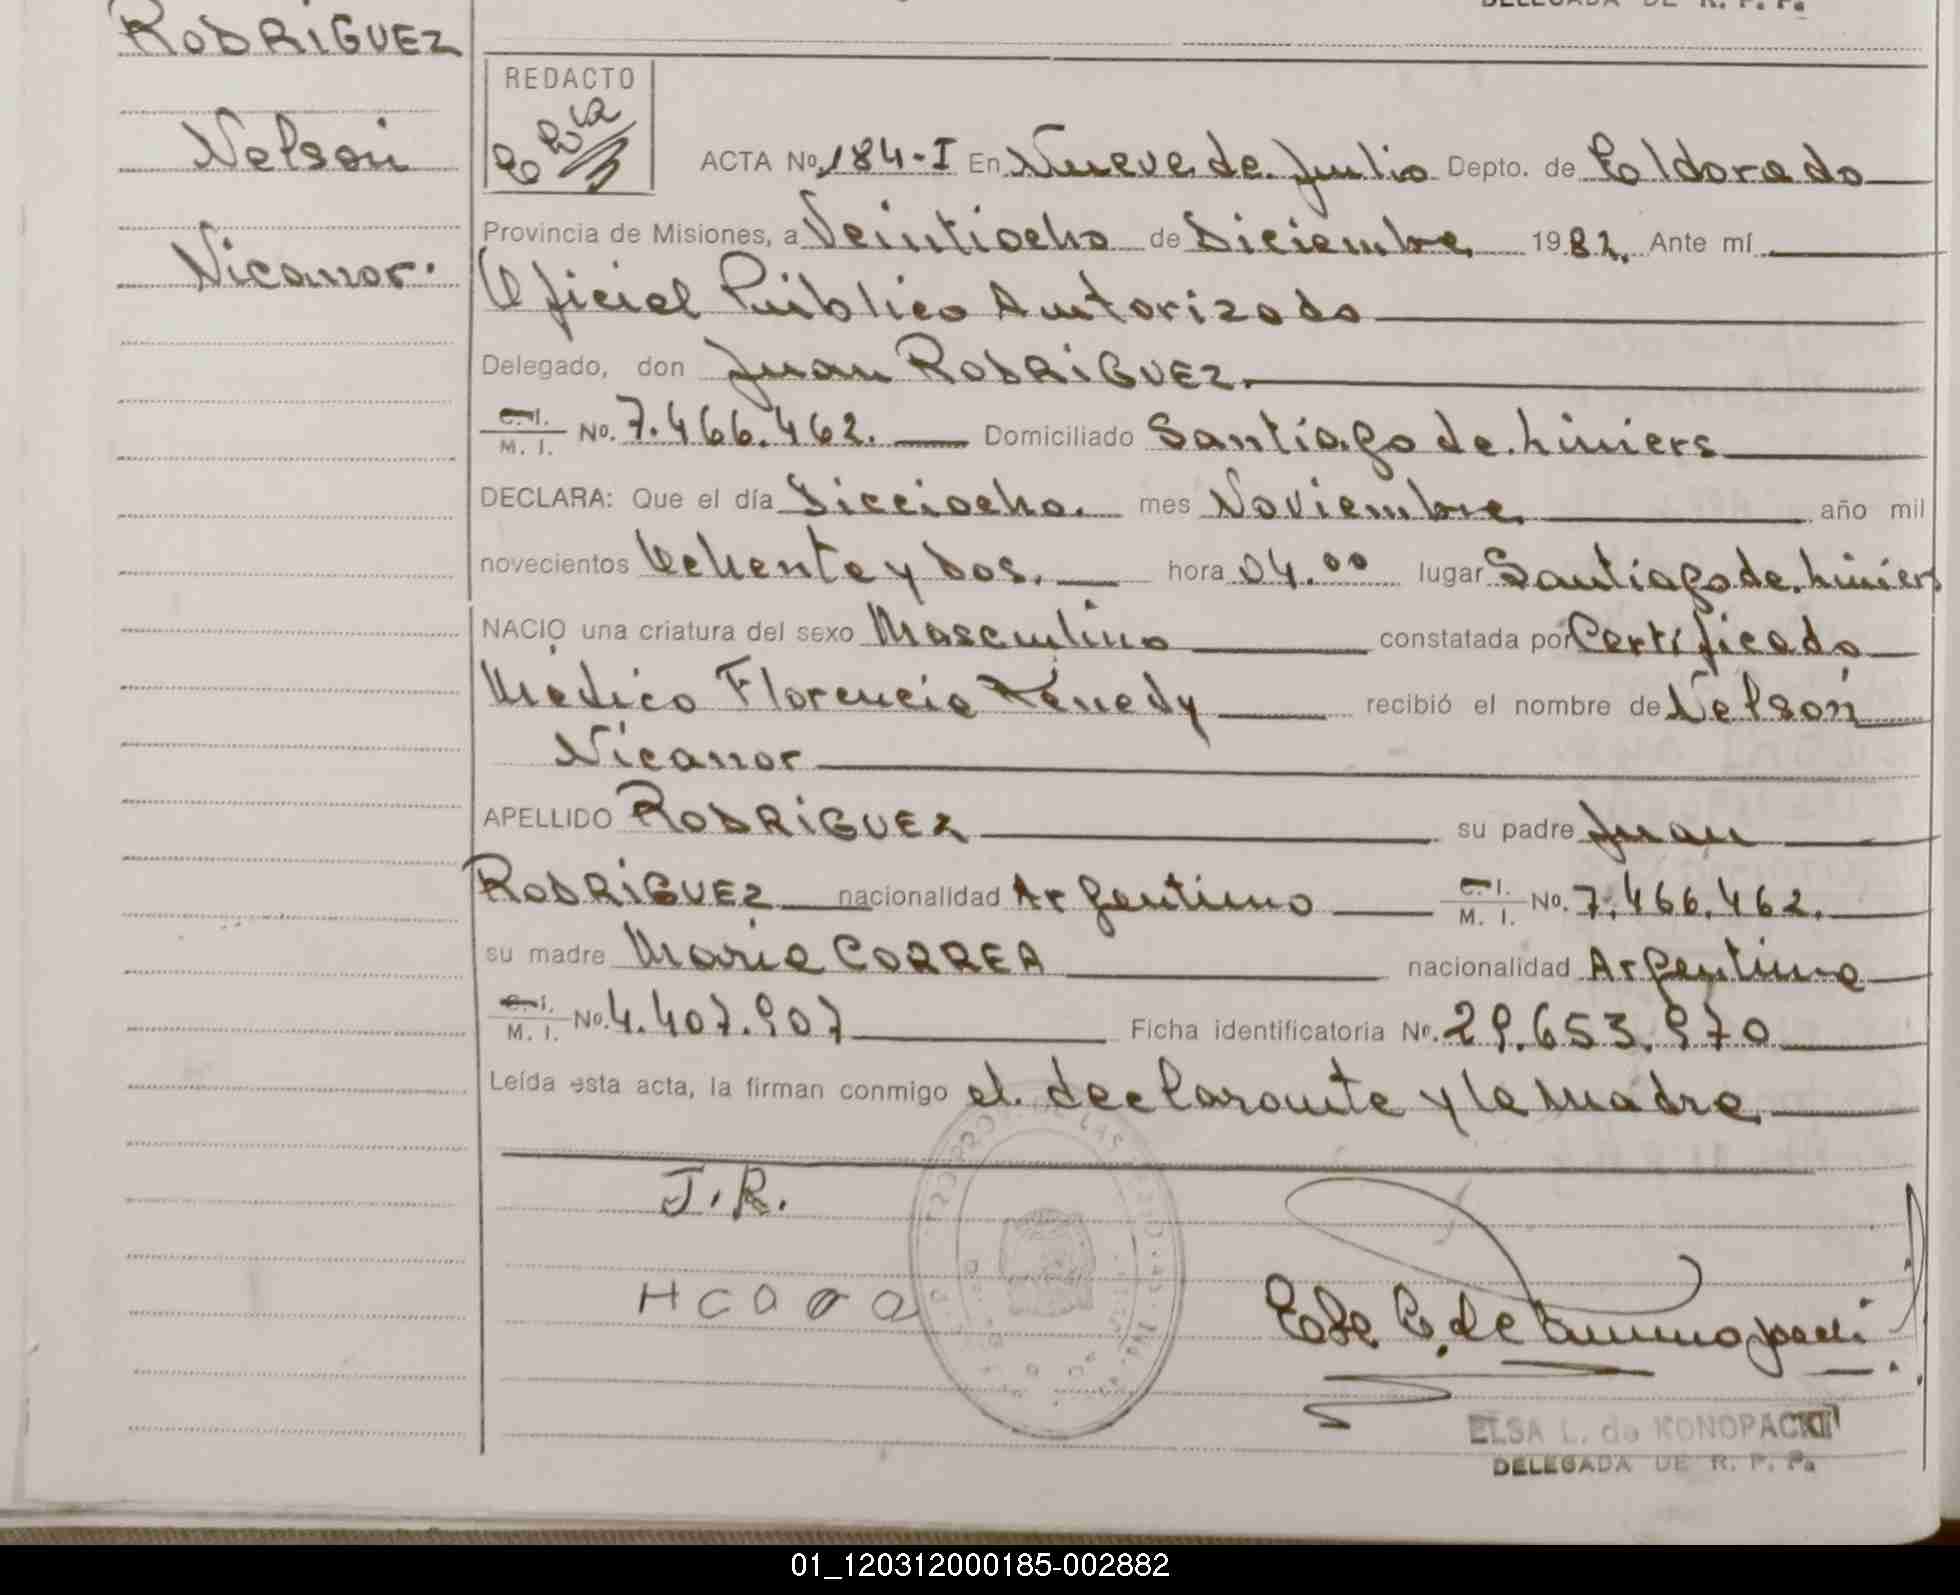 DELEGADA DE R. P. Pa.
RODRIGUEZ
Nelson
Nicanor.
REDACTO
ACTA No. 184-I En Nueve de Julio Depto. de Eldorado
Provincia de Misiones, a Veintiocho de Diciembre 1982. Ante mí
Oficial Público Autorizado
Delegado, don Juan RODRIGUEZ.
C. I. / M. I. No. 7.466.462. Domiciliado Santiago de Liniers
DECLARA: Que el día Dieciocho. mes Noviembre año mil
novecientos Ochenta y Dos. hora 04.00 lugar Santiago de Liniers
NACIO una criatura del sexo Masculino constatada por Certificado
Médico Florencia Kenedy recibió el nombre de Nelson
Nicanor
APELLIDO RODRIGUEZ su padre Juan
RODRIGUEZ nacionalidad Argentino C. I. / M. I. No. 7.466.462.
su madre Maria CORREA nacionalidad Argentina
C. I. / M. I. No. 4.407.907 Ficha identificatoria No. 29.653.970
Leída esta acta, la firman conmigo el declarante y la madre
J.R.
ELSA L. de KONOPACKI
DELEGADA DE R. P. Pa.
01_120312000185-002882